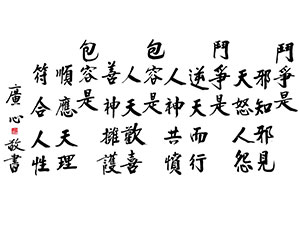 鬥爭是
邪知邪見
天怒人怨
鬥爭是
逆天而行
人神共憤
包容是
人天歡喜
善神擁護
包容是
順應天理
符合人性
廣心敬書